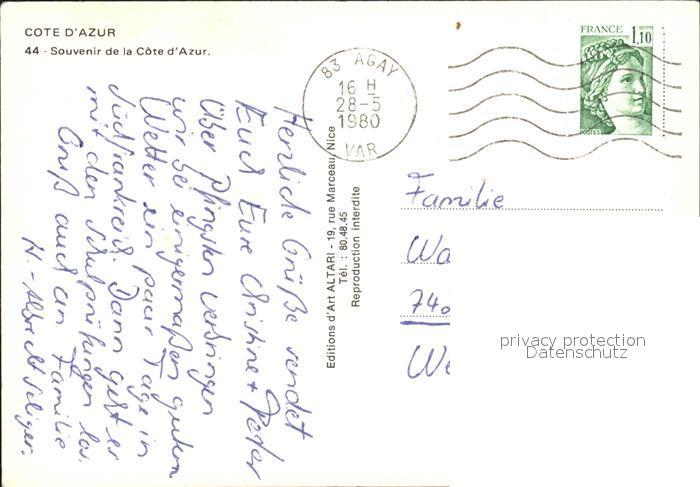 COTE D'AZUR
44 - Souvenir de la Côte d'Azur.
83 AGAY
16 H
28-5
1980
VAR
FRANCE
1,10
POSTES
Herzliche Grüße sendet
Euch Eure Christine + Peter
Über Pfingsten verbringen
wir bei einigermaßen gutem
Wetter ein paar Tage in
Südfrankreich. Dann geht es
mit den Schulprüfungen los.
Gruß auch an Familie
H. - Albrecht Seliger.
Editions d'Art ALTARI - 19, rue Marceau, Nice
Tél. : 80.48.45
Reproduction interdite
Familie
Wa
740
We
privacy protection
Datenschutz